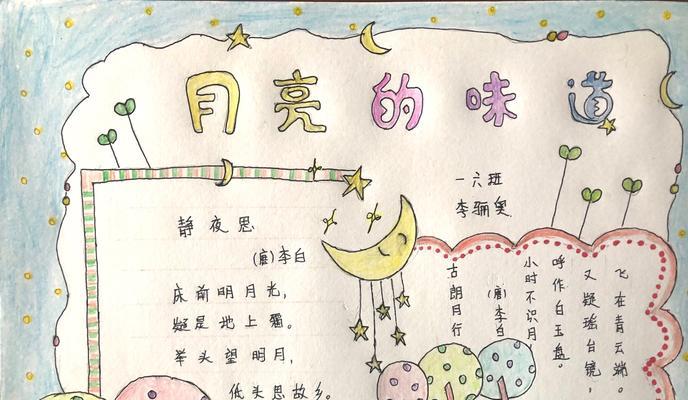 月亮的味道
一六班
李骊奥
静夜思
(唐)李白
床前明月光,
疑是地上霜。
举头望明月,
低头思故乡。
古朗月行
(唐)李白
小时不识月
呼作白玉盘。
又疑瑶台镜,
飞在青云端。